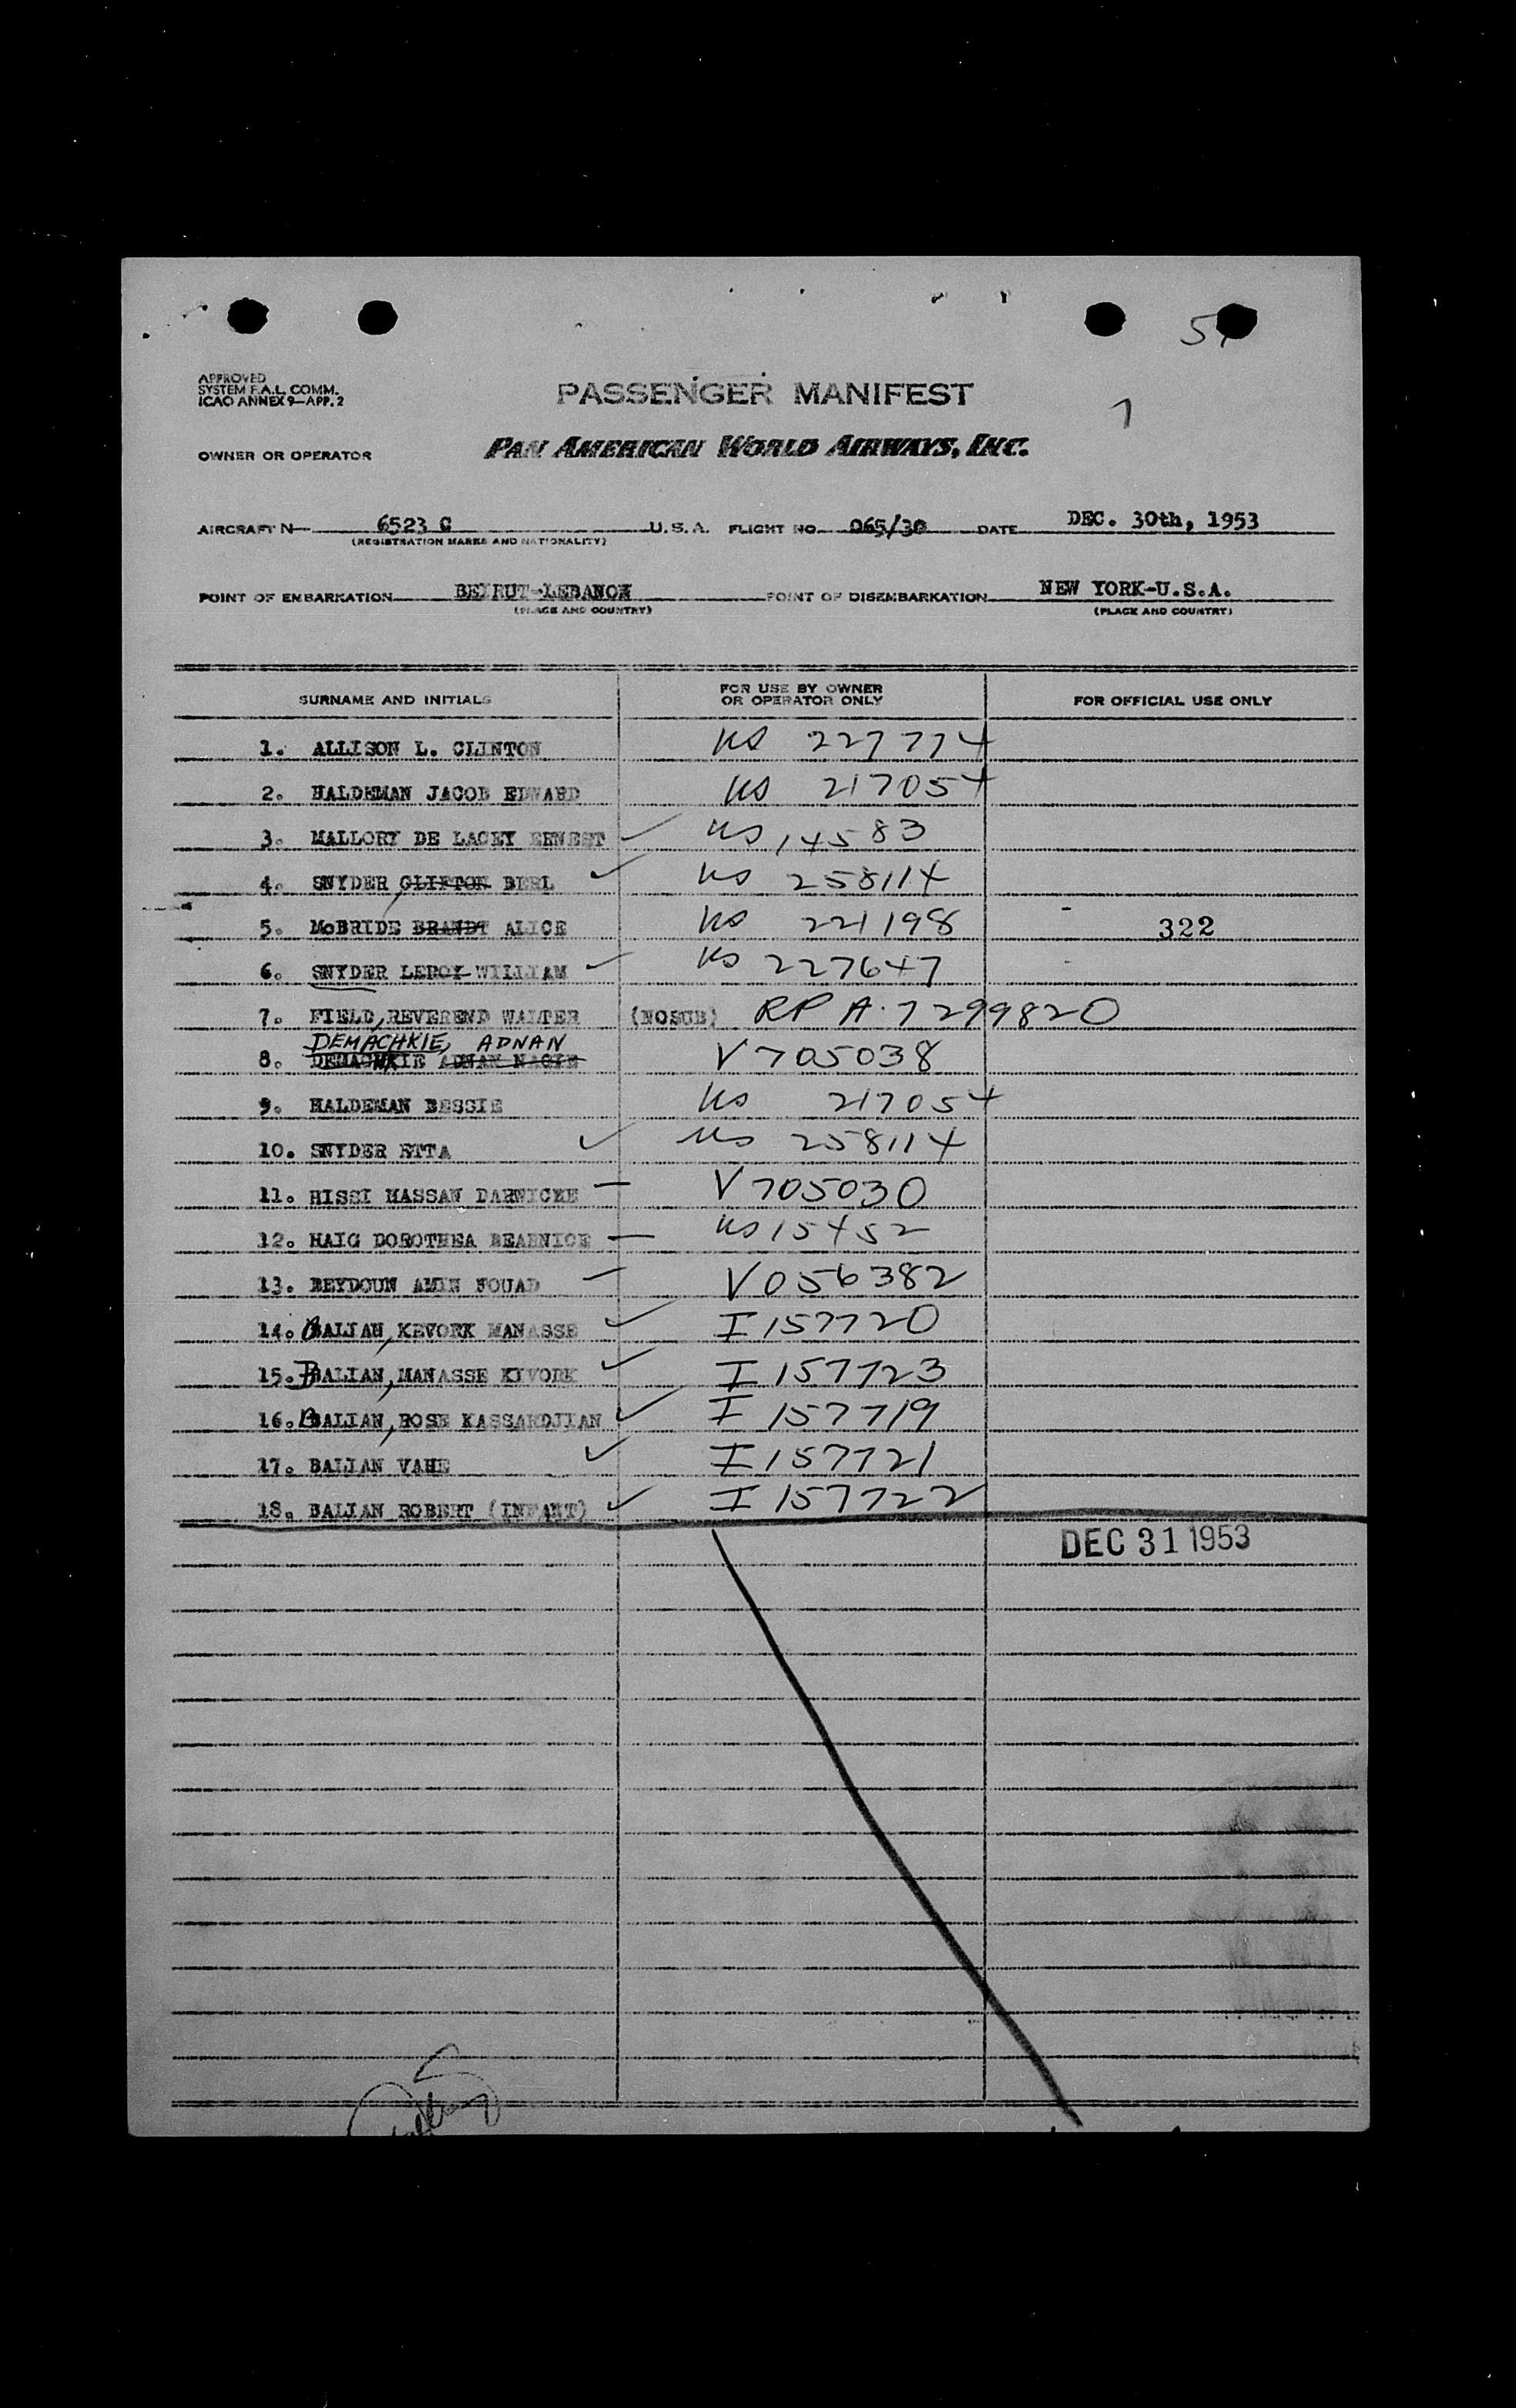 5
APPROVED
SYSTEM F.A.L. COMM.
ICAO ANNEX 9—APP. 2
PASSENGER MANIFEST
7
OWNER OR OPERATOR PAN AMERICAN WORLD AIRWAYS, INC.
AIRCRAFT N— 6523 C U.S.A. FLIGHT NO. 065/30 DATE DEC. 30th, 1953
(REGISTRATION MARKS AND NATIONALITY)
POINT OF EMBARKATION BEIRUT-LEBANON POINT OF DISEMBARKATION NEW YORK-U.S.A.
(PLACE AND COUNTRY) (PLACE AND COUNTRY)
SURNAME AND INITIALS FOR USE BY OWNER OR OPERATOR ONLY FOR OFFICIAL USE ONLY
1. ALLISON L. CLINTON US 227774
2. HALDEMAN JACOB EDWARD US 217054
3. MALLORY DE LACEY ERNEST ✓ US 14583
4. SNYDER, CLIFTON BERL ✓ US 258114
5. McBRIDE BRANDT ALICE US 221198 322
6. SNYDER LEROY WILLIAM ✓ US 227647
7. FIELD, REVEREND WALTER (NOSUB) RP A-7299820
DEMACHKIE, ADNAN
8. DEMACHKIE ADNAN NAGIB V 705038
9. HALDEMAN BESSIE US 217054
10. SNYDER ETTA ✓ US 258114
11. HISSI HASSAN DARWICHE — V 705030
12. HAIG DOROTHEA BEARNICE — US 15452
13. BEYDOUN AMIN FOUAD — V 056382
14. BALIAN, KEVORK MANASSE ✓ I 157720
15. BALIAN, MANASSE KIVORK ✓ I 157723
16. BALIAN, ROSE KASSARDJIAN ✓ I 157719
17. BALIAN VAHE ✓ I 157721
18. BALIAN ROBERT (INFANT) ✓ I 157722
DEC 31 1953